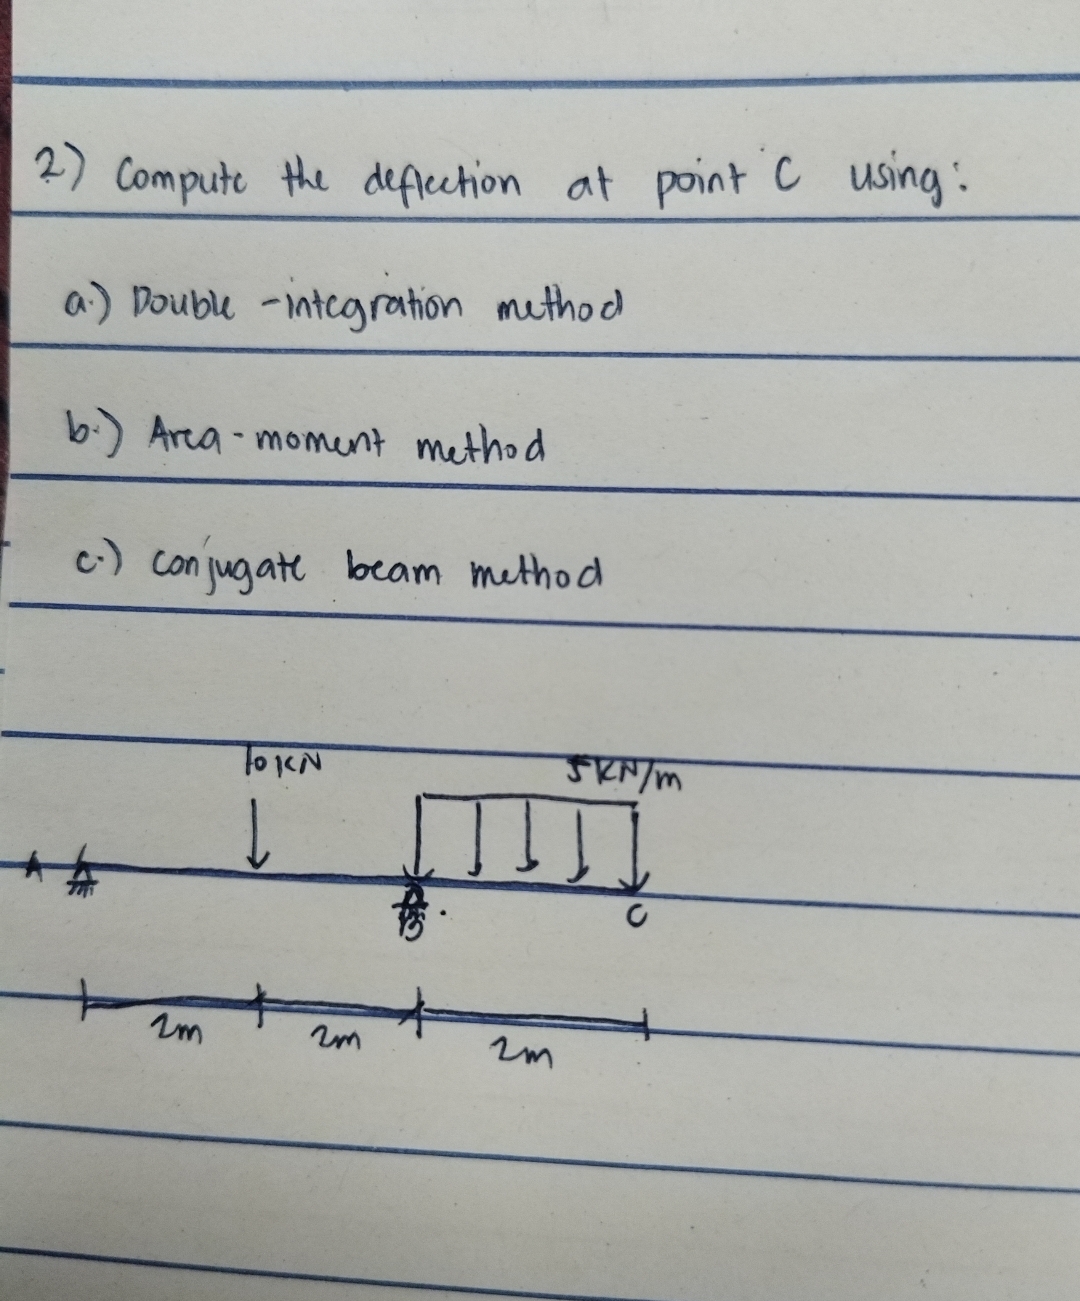 2.) Compute the deflection at point C using:
a.) Double-integration method
b.) Area-moment method
c.) conjugate beam method
10 KN
5 KN/m
A
B
C
2m 2m 2m